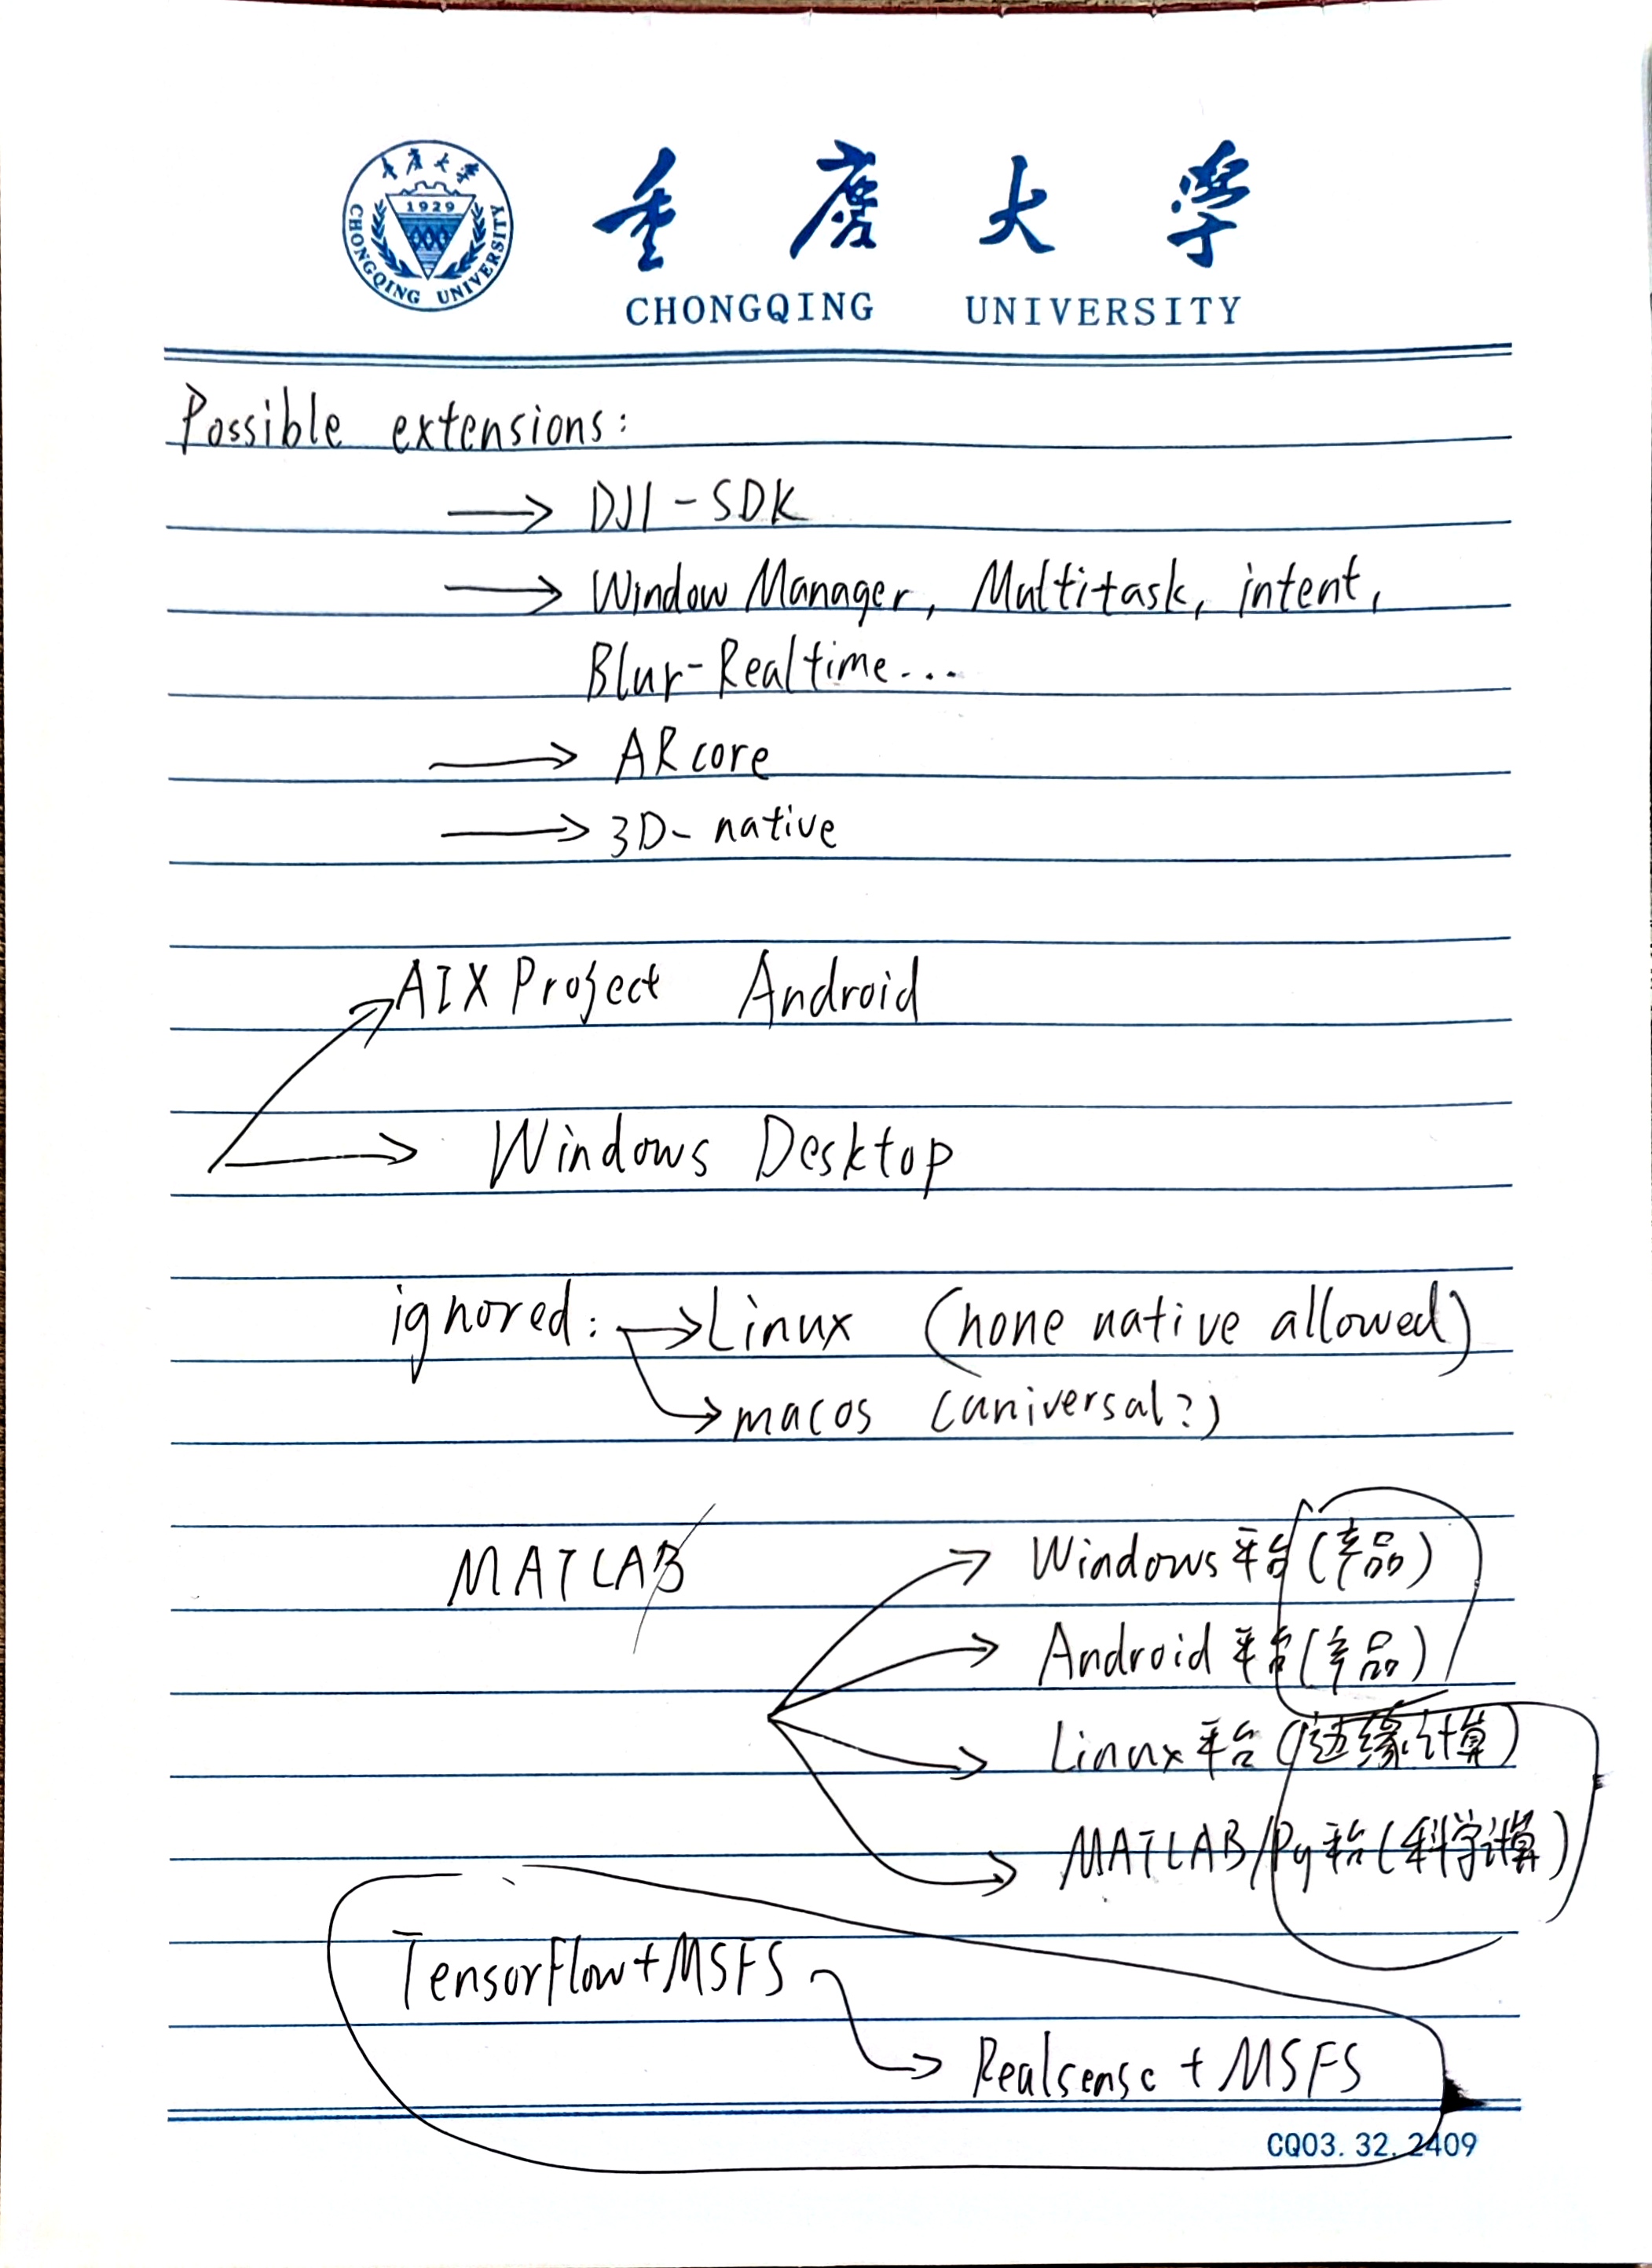 重庆大学
1929
CHONGQING UNIVERSITY
重慶大學
CHONGQING UNIVERSITY
Possible extensions:
→ DJI-SDK
→ Window Manager, Multitask, intent,
Blur-Realtime...
→ ARcore
→ 3D-native
AIX Project Android
→ Windows Desktop
ignored: → Linux (none native allowed)
→ macos (universal?)
MATLAB
→ Windows平台(产品)
→ Android平台(产品)
→ Linux平台(边缘计算)
→ MATLAB/Py平台(科学计算)
Tensorflow+MSFS
→ Realsense + MSFS
CQ03.32.2409